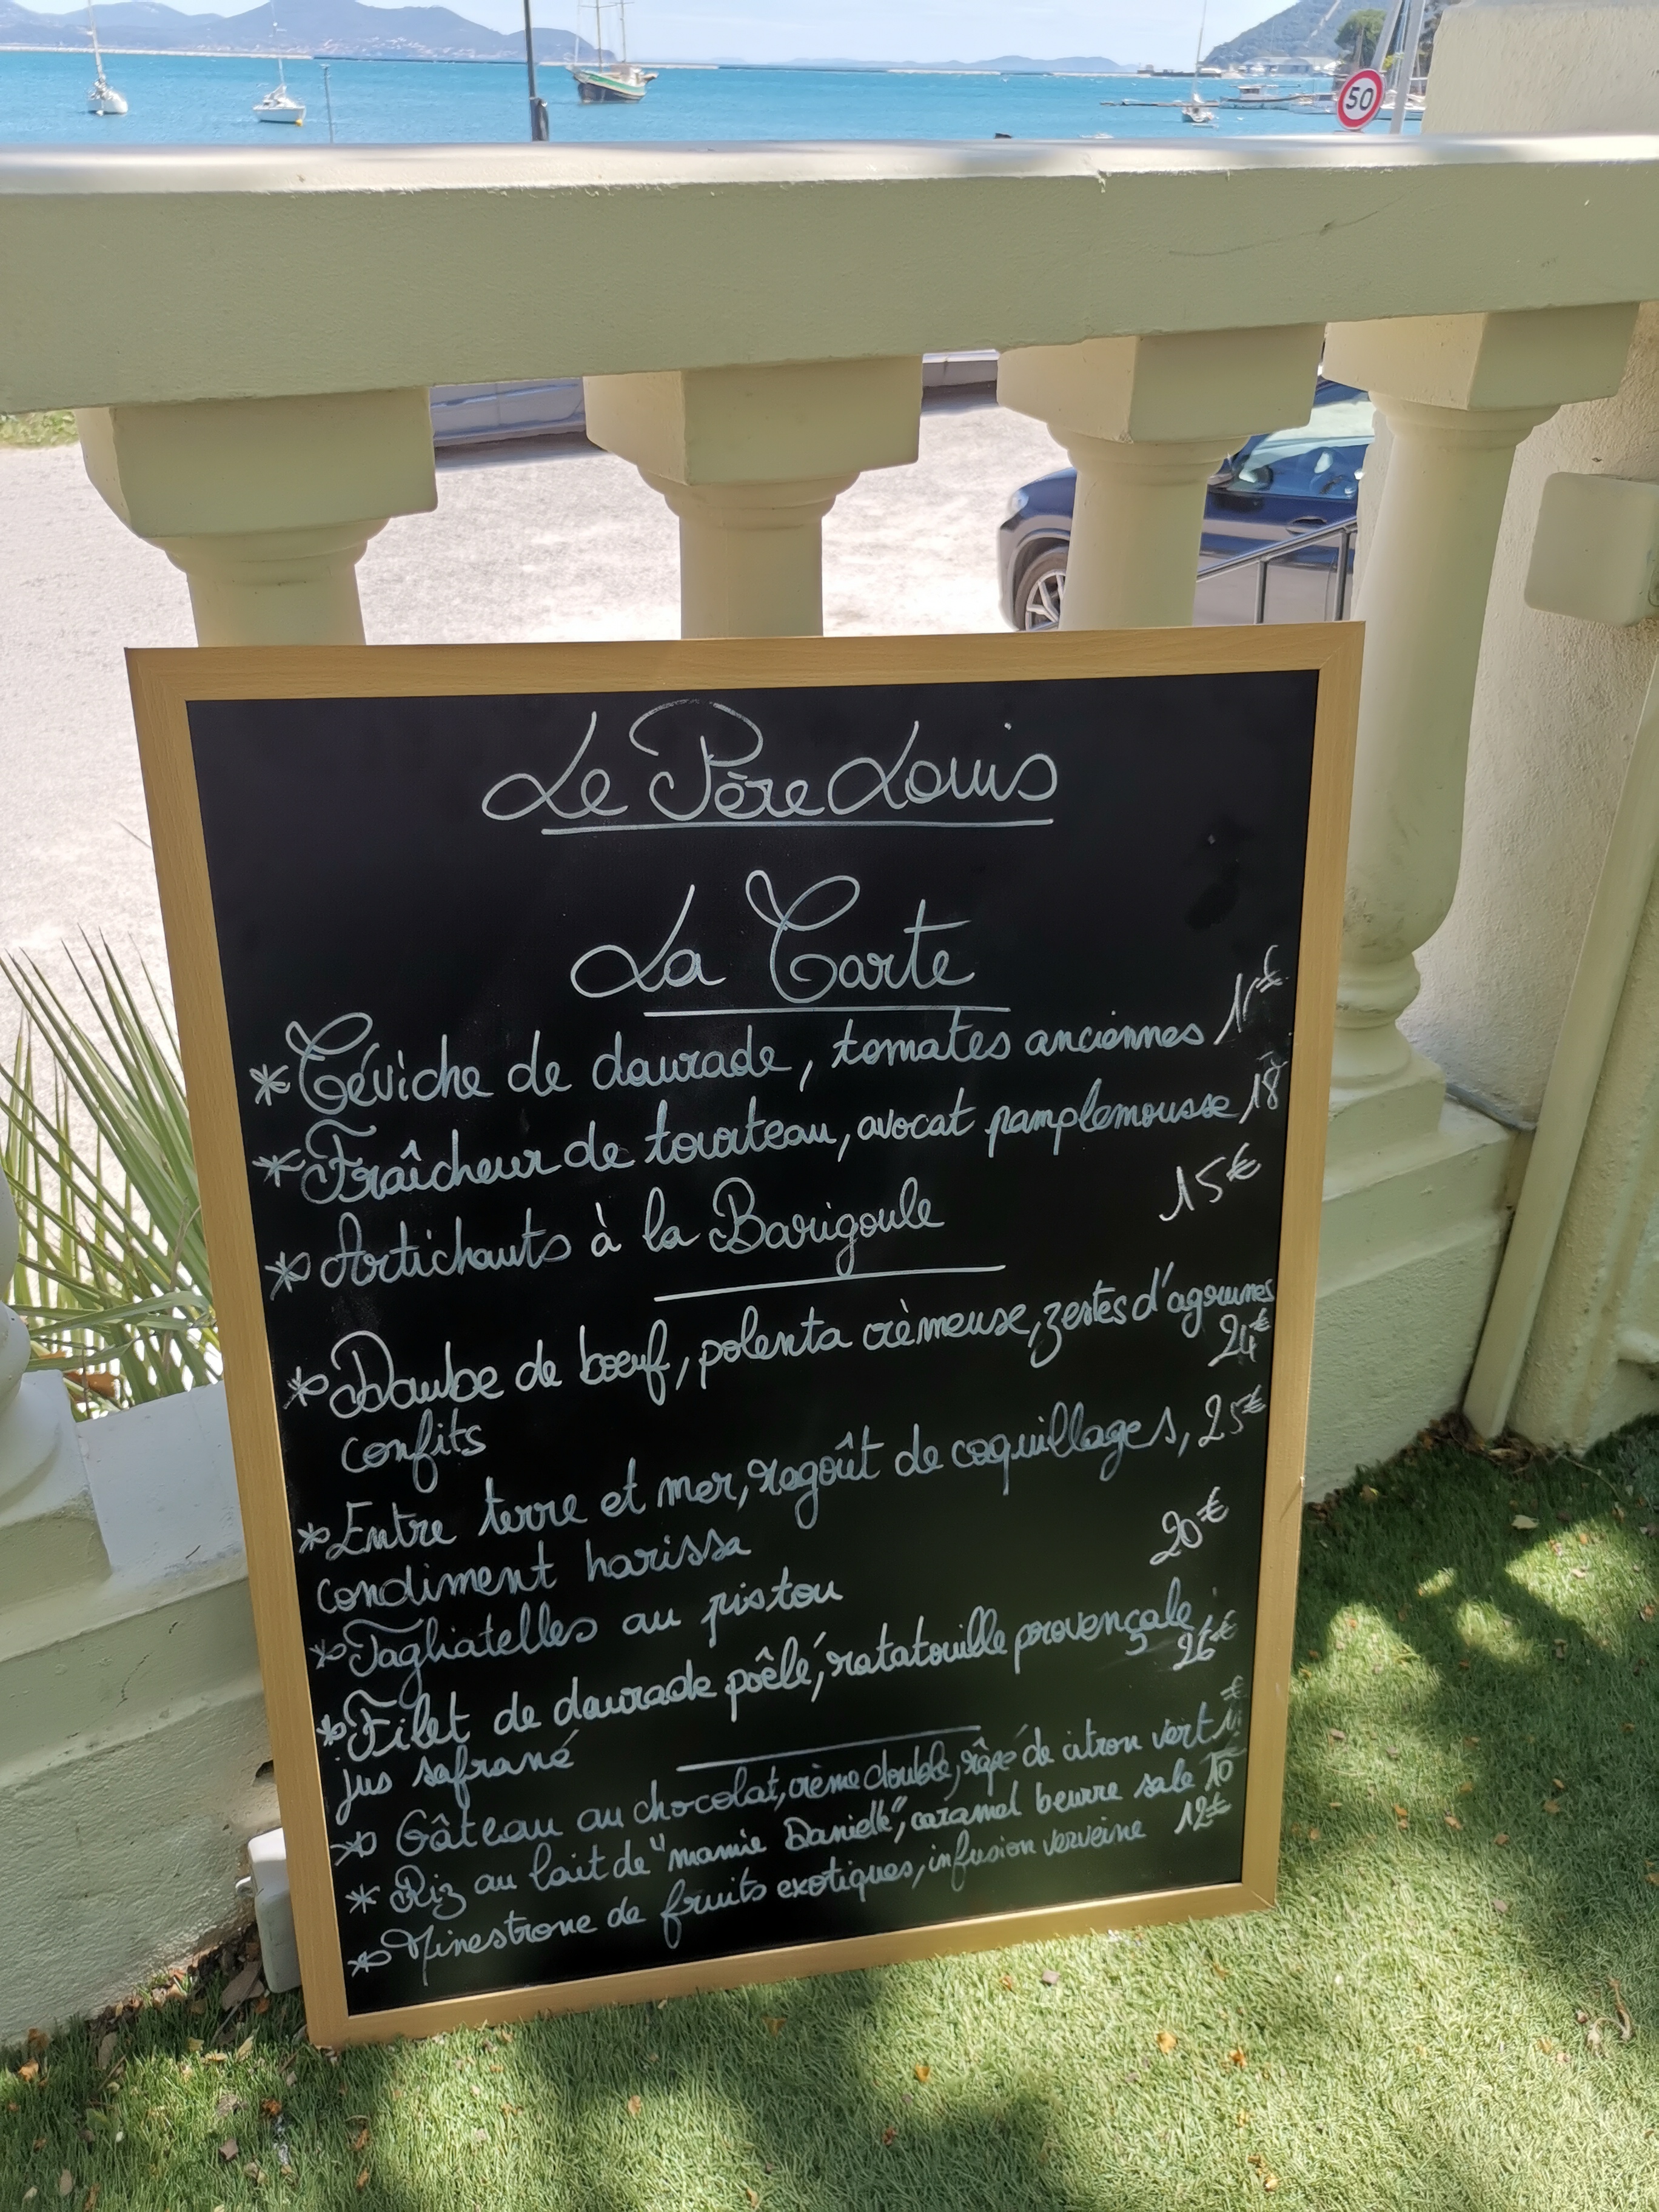 50
Le Père Louis
La Carte
* Céviche de daurade, tomates anciennes
* Fraîcheur de tourteau, avocat pamplemousse 18
* Artichauts à la Barigoule 15€
* Daube de boeuf, polenta crèmeuse, zestes d'agrumes
confits 24€
* Entre terre et mer, ragoût de coquillages, 25€
condiment harissa
* Tagliatelles au pistou 20€
* Filet de daurade poêlé, ratatouille provençale,
jus safrané 26€
* Gâteau au chocolat, crème double, râpé de citron vert
* Riz au lait de "mamie Danielle", caramel beurre sale 10
* Minestrone de fruits exotiques, infusion verveine 12€